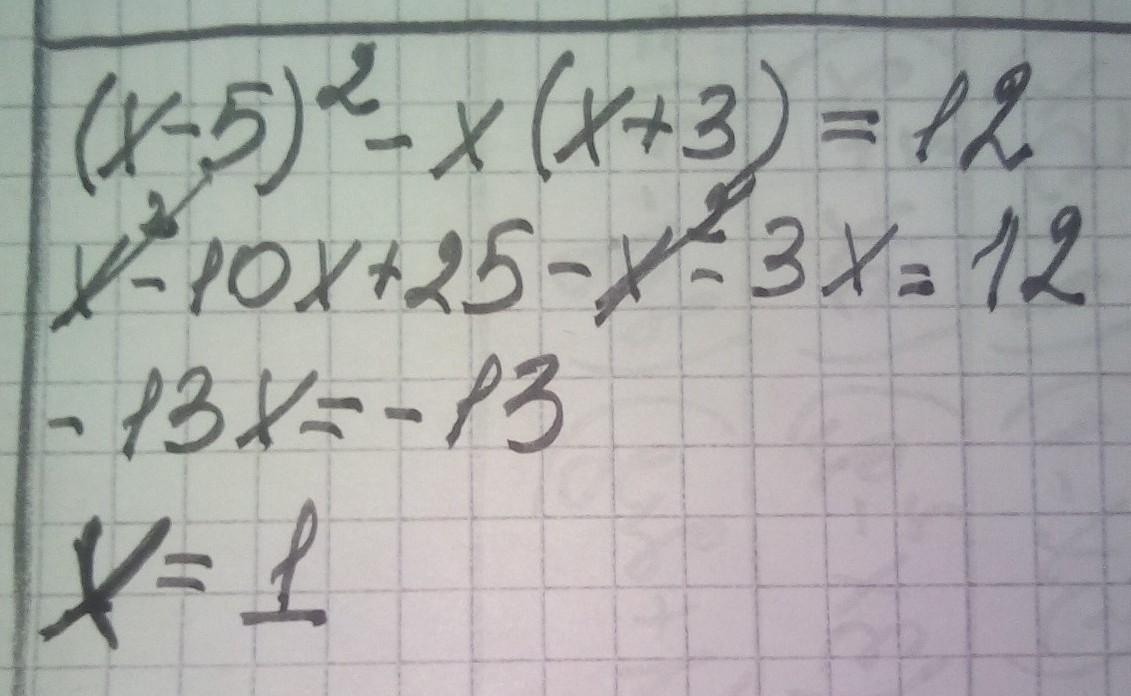 (x-5)² - x(x+3) = 12
x² - 10x + 25 - x² - 3x = 12
- 13x = - 13
x = 1